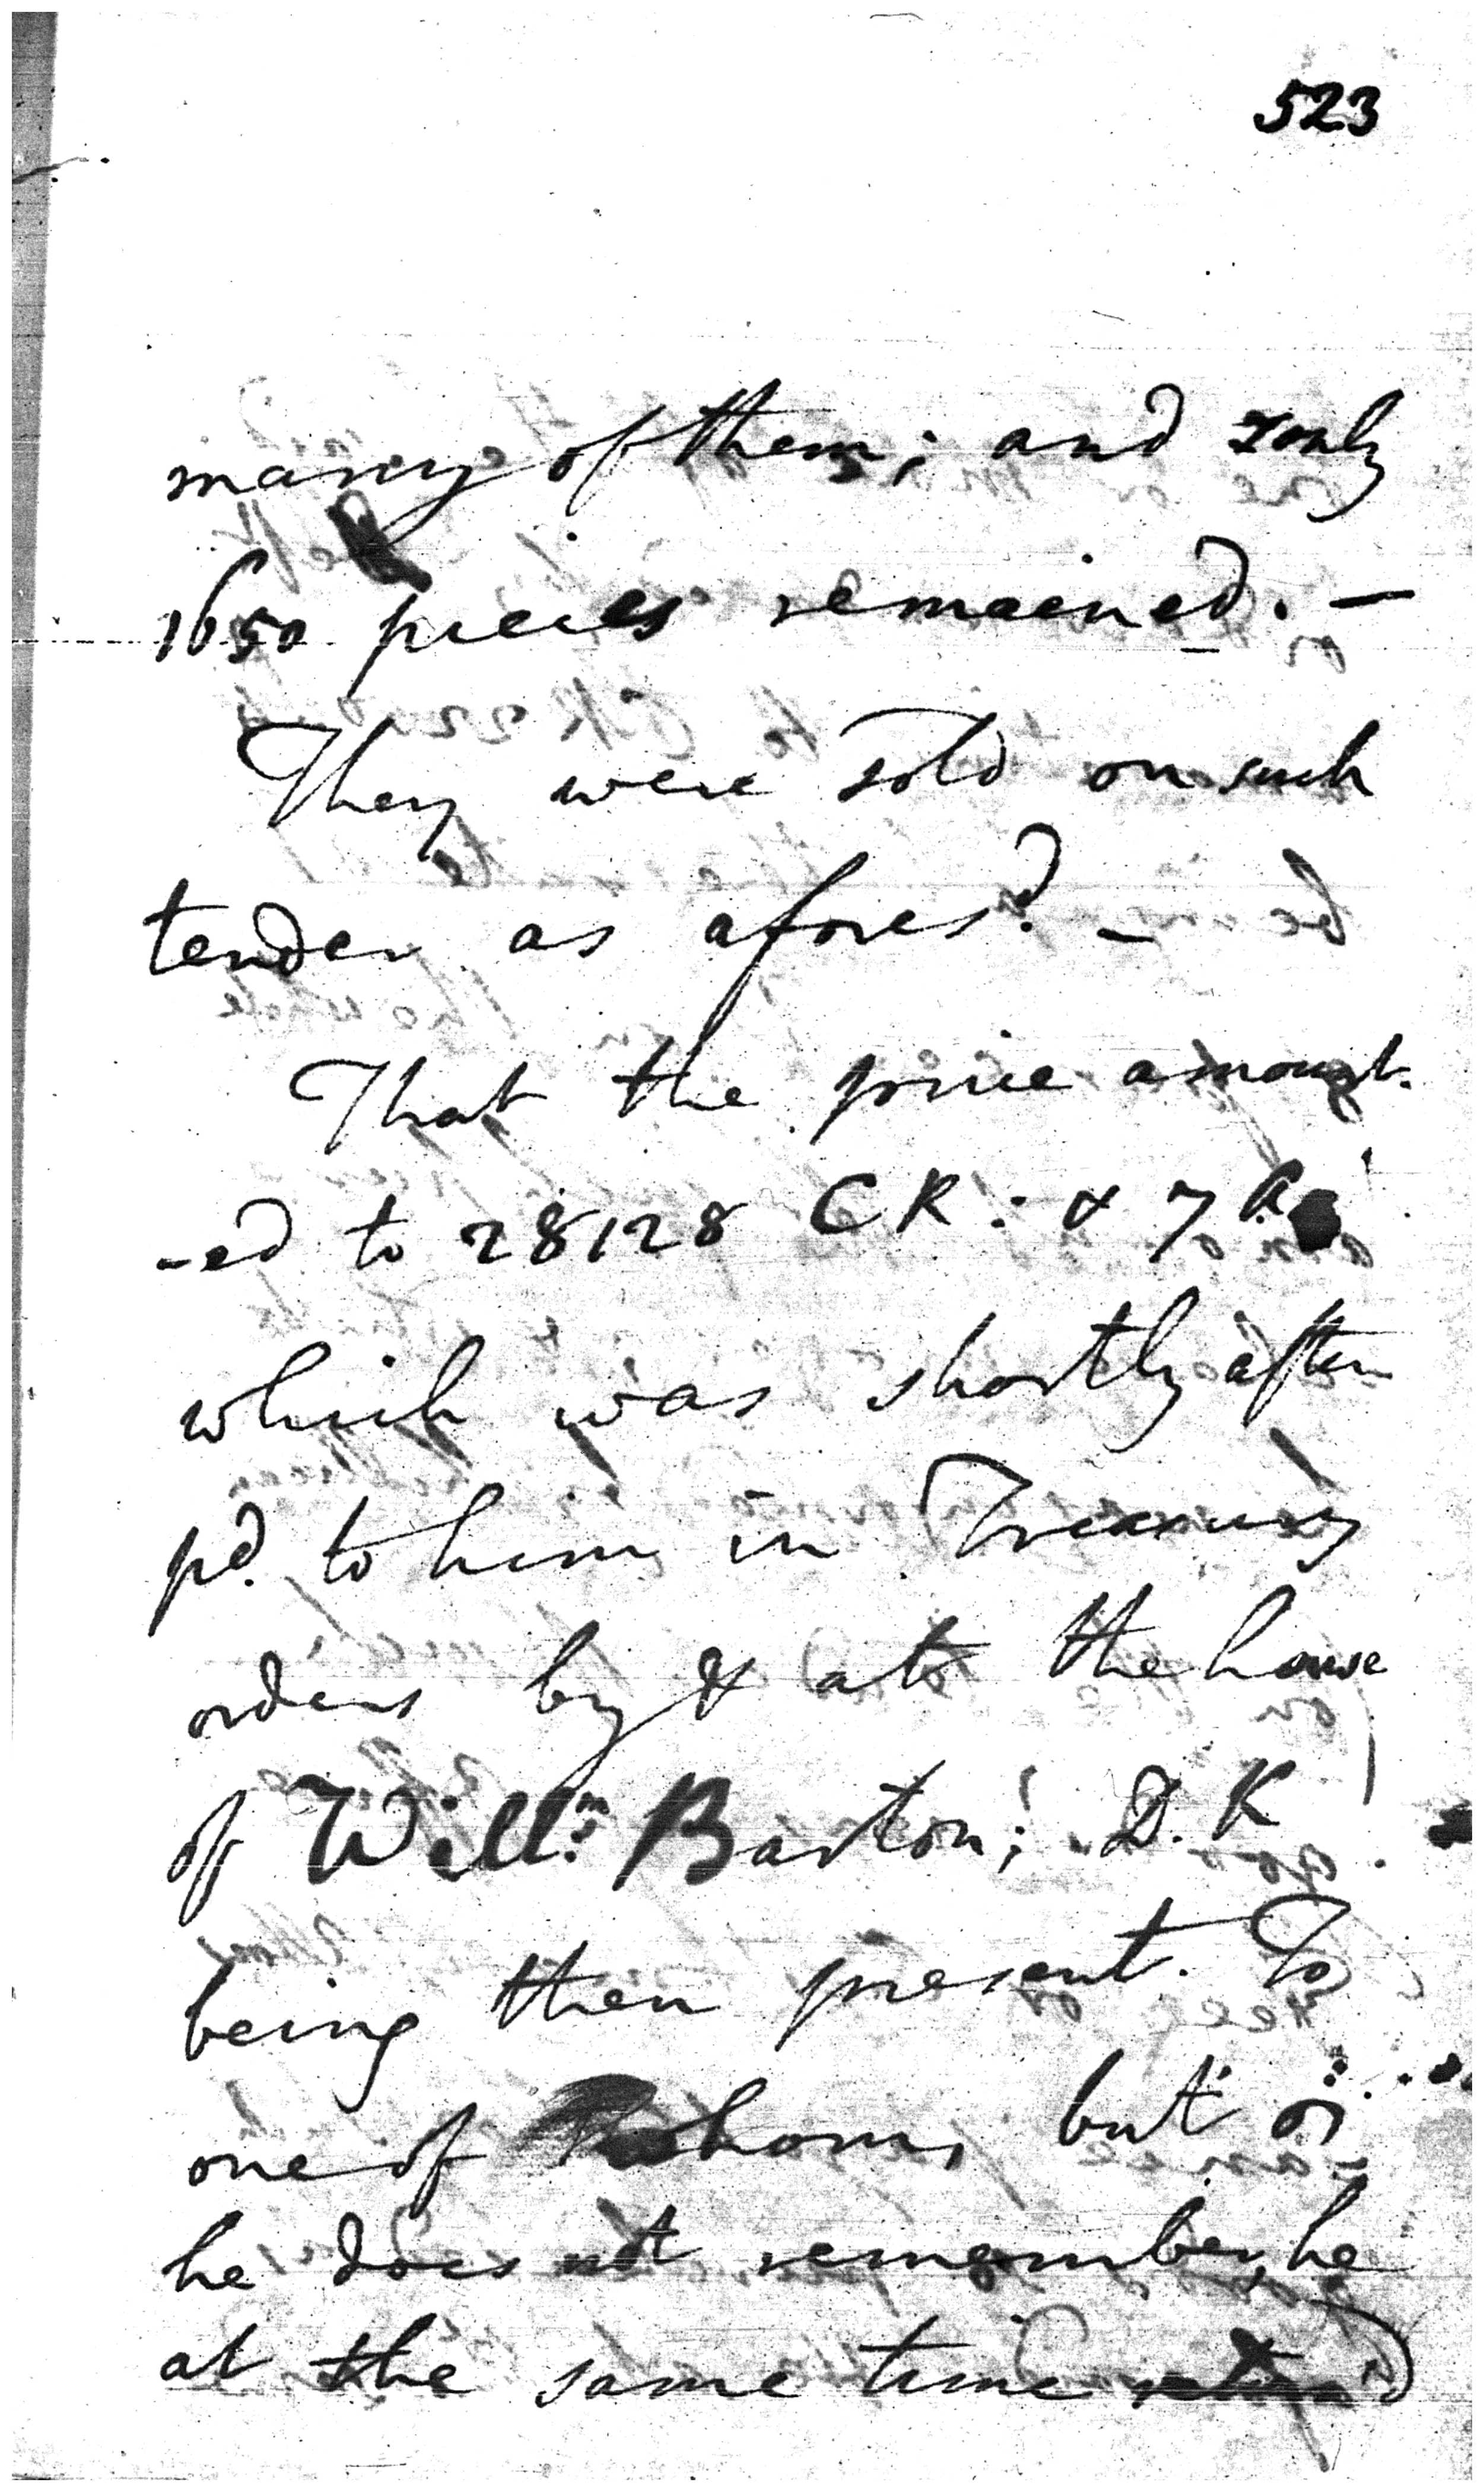 523
many of them; and only
1650 pieces remained. —
They were sold on such
tender as afores.d —
That the price amount
-ed to 28128 CR: & 7 A.
which was shortly after
pd. to him in Treasury
orders by & at the house
of Will.m Barton; D. K
being then present. To
one of whom, but
he does not remember, he
at the same time